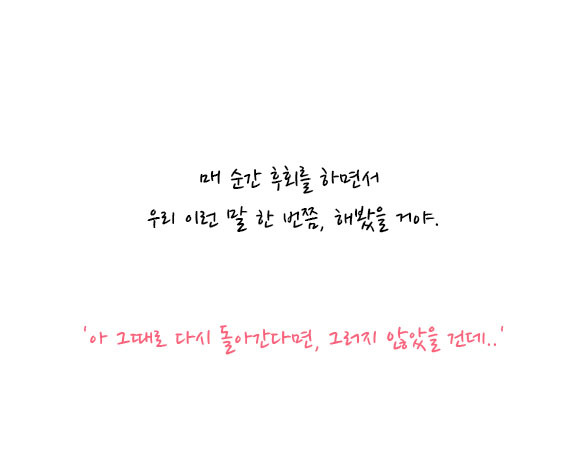 매 순간 후회를 하면서
우리 이런 말 한 번쯤, 해봤을 거야.
'아 그때로 다시 돌아간다면, 그러지 않았을 건데..'